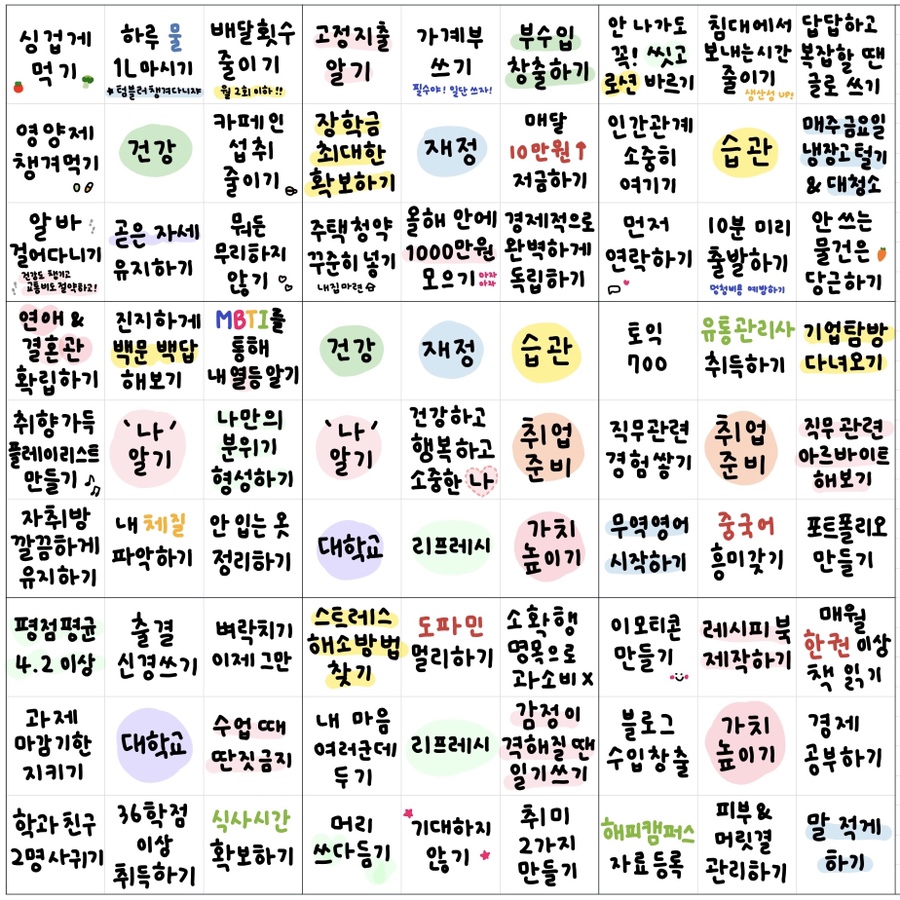 싱겁게
먹기
하루 물
1L 마시기
*텀블러 챙겨다니쟈
배달횟수
줄이기
월 2회 이하!!
영양제
챙겨먹기
건강
카페인
섭취
줄이기
알바
걸어다니기
건강도 챙기고
교통비도 절약하고!
곧은 자세
유지하기
뭐든
무리하지
않기
고정지출
알기
가계부
쓰기
필수야! 일단 쓰자!
부수입
창출하기
장학금
최대한
확보하기
재정
매달
10만원↑
저금하기
주택청약
꾸준히 넣기
내집마련
올해 안에
1000만원
모으기 아자
아자
경제적으로
완벽하게
독립하기
안 나가도
꼭! 씻고
로션 바르기
침대에서
보내는시간
줄이기
생산성 UP!
답답하고
복잡할 땐
글로 쓰기
인간관계
소중히
여기기
습관
매주 금요일
냉장고 털기
& 대청소
먼저
연락하기
10분 미리
출발하기
멍청비용 예방하기
안 쓰는
물건은
당근하기
연애 &
결혼관
확립하기
진지하게
백문 백답
해보기
MBTI를
통해
내 열등 알기
취향가득
플레이리스트
만들기
'나'
알기
나만의
분위기
형성하기
자취방
깔끔하게
유지하기
내 체질
파악하기
안 입는 옷
정리하기
건강
재정
습관
'나'
알기
건강하고
행복하고
소중한 나
취업
준비
대학교
리프레시
가치
높이기
토익
700
유통관리사
취득하기
기업탐방
다녀오기
직무관련
경험 쌓기
취업
준비
직무 관련
아르바이트
해보기
무역영어
시작하기
중국어
흥미갖기
포트폴리오
만들기
평점평균
4.2 이상
출결
신경쓰기
벼락치기
이제 그만
과제
마감기한
지키기
대학교
수업 때
딴짓금지
학과 친구
2명 사귀기
36학점
이상
취득하기
식사시간
확보하기
스트레스
해소방법
찾기
도파민
멀리하기
소확행
명목으로
과소비 X
내 마음
여러군데
두기
리프레시
감정이
격해질 땐
일기쓰기
머리
쓰다듬기
기대하지
않기
취미
2가지
만들기
이모티콘
만들기
레시피 북
제작하기
매월
한권 이상
책 읽기
블로그
수입창출
가치
높이기
경제
공부하기
해피캠퍼스
자료등록
피부 &
머릿결
관리하기
말 적게
하기